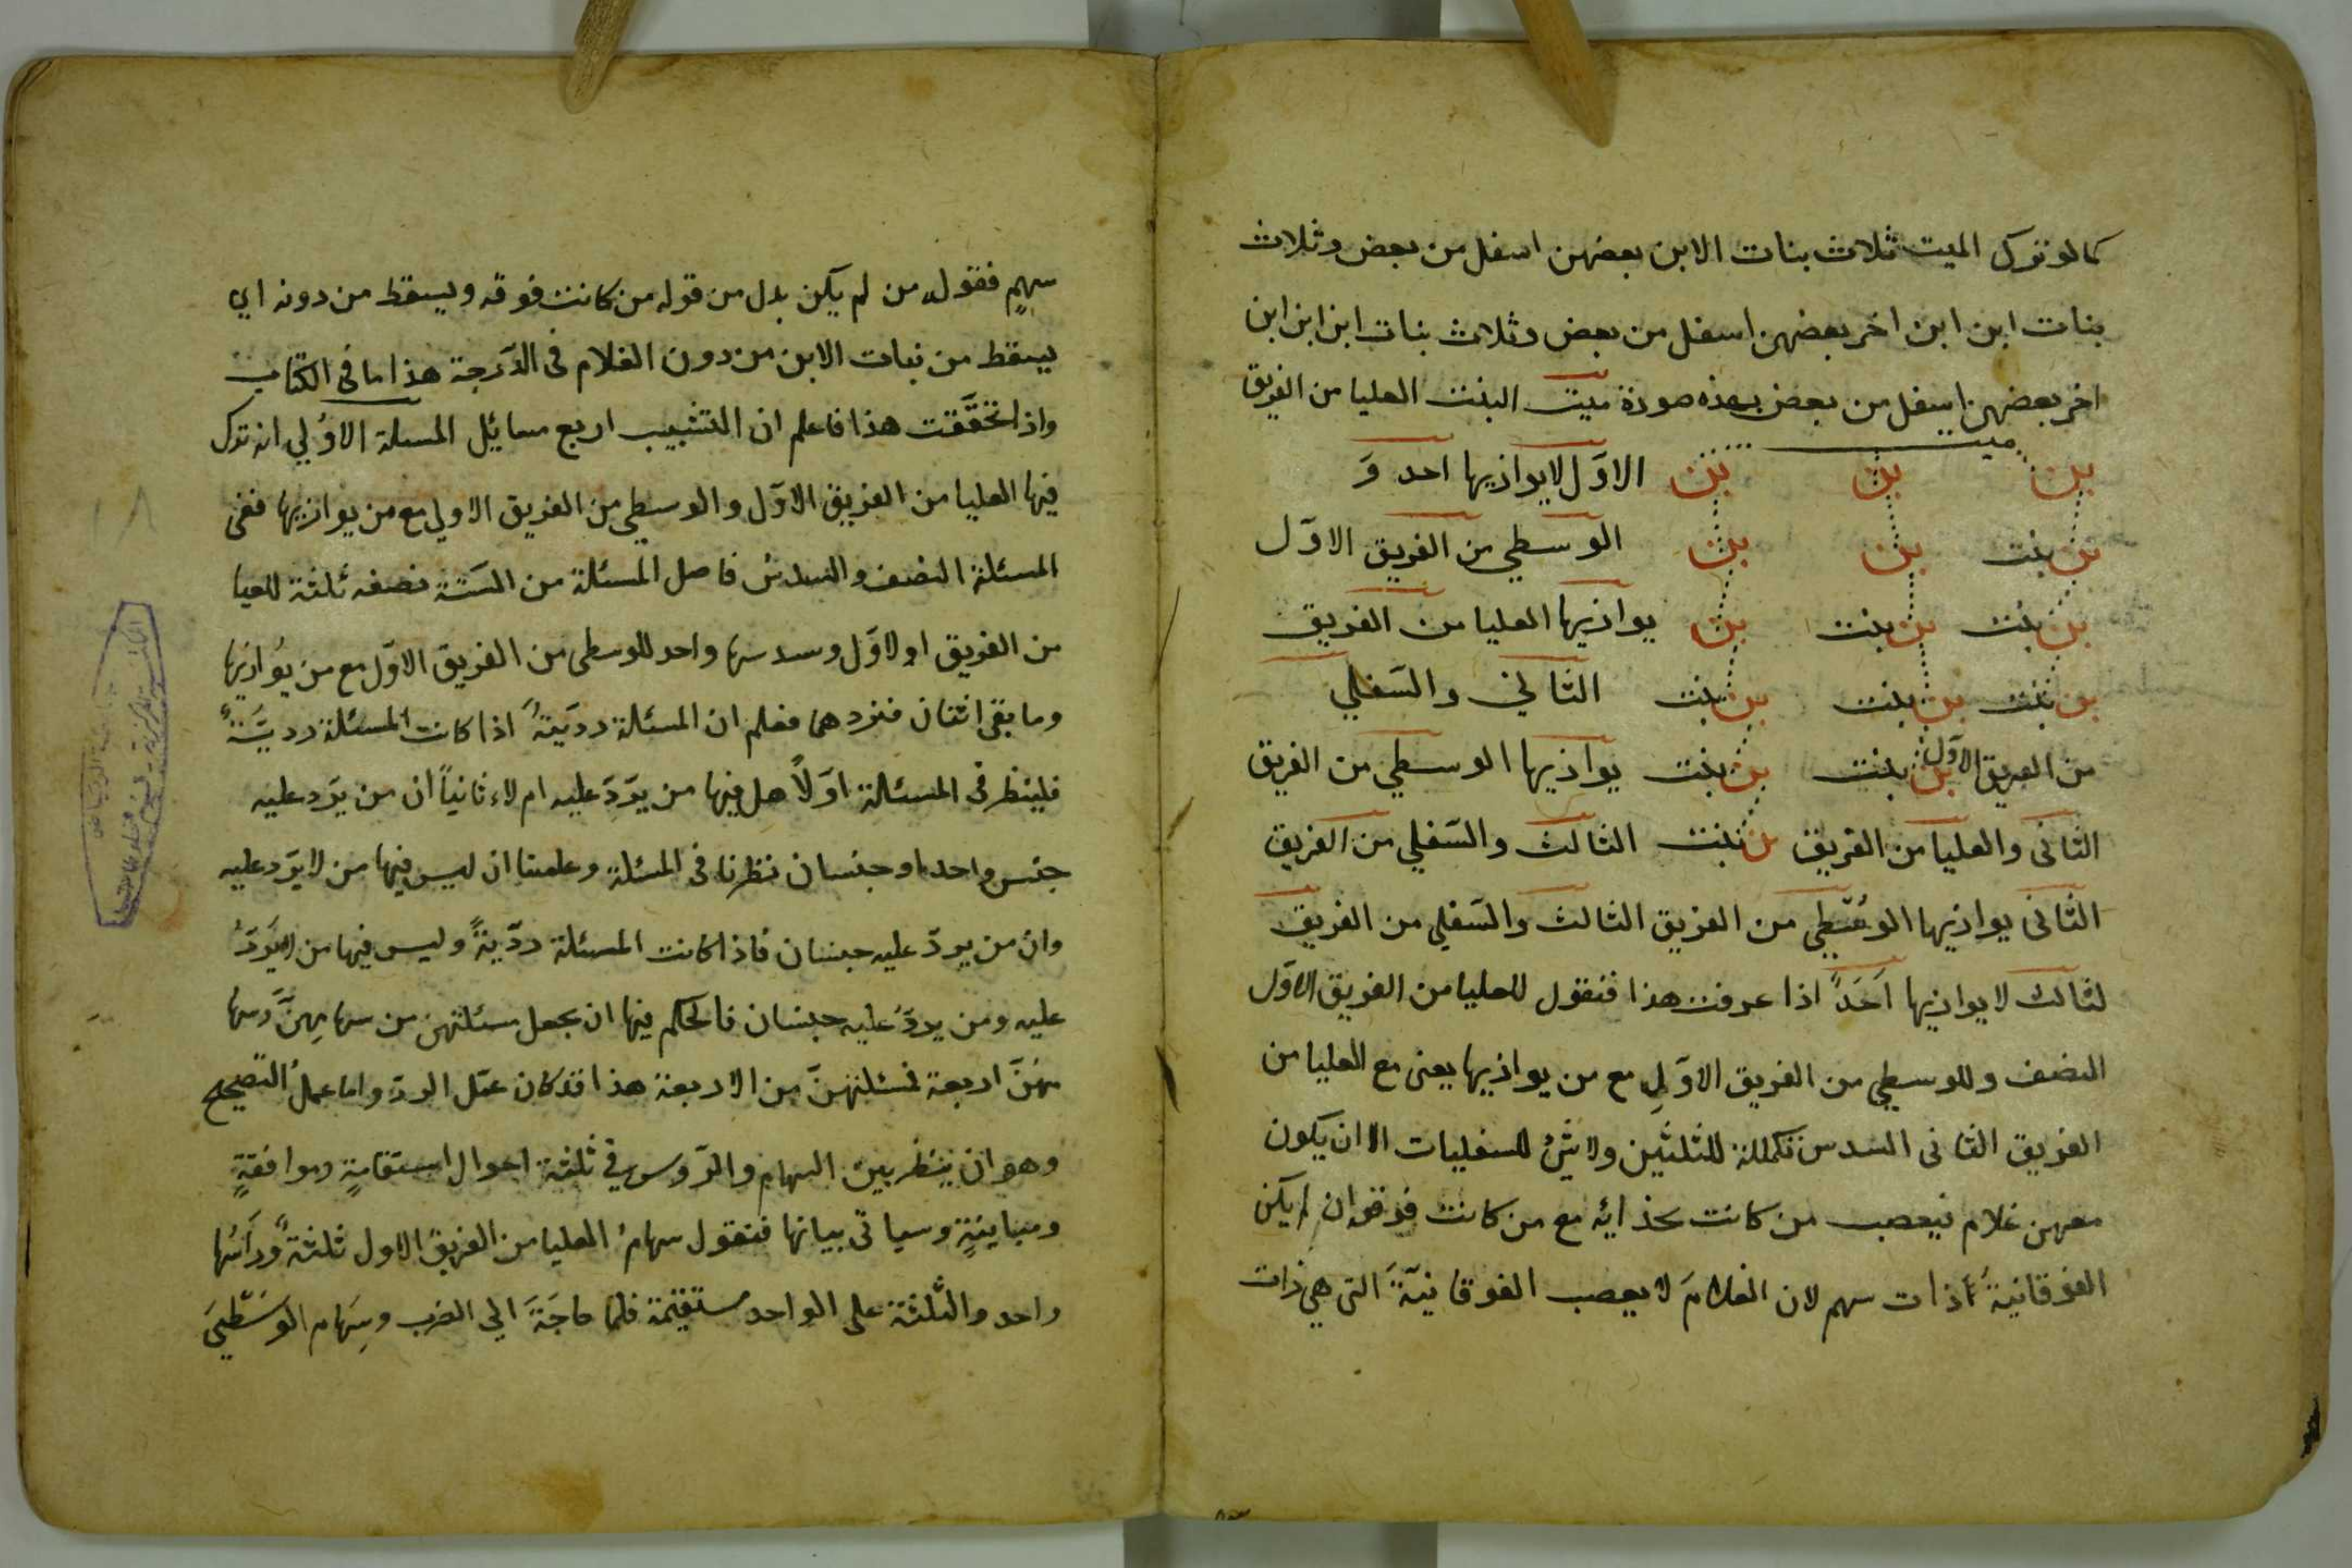 كما لو ترك الميت ثلاث بنات الابن بعضهن اسفل من بعض وثلاث
بنات ابن ابن اخر بعضهن اسفل من بعض وثلاث بنات ابن ابن ابن
اخر بعضهن اسفل من بعض بهذه صورة ميت البنت العليا من الفريق
ميت
ابن ابن ابن الاوّل لا يوازيها احد وَ
ابن بنت ابن ابن الوسطي من الفريق الاوّل
ابن بنت ابن بنت ابن يوازيها العليا من الفريق
ابن بنت ابن بنت ابن بنت الثاني والسّفلي
من الفريق الاوّل ابن بنت ابن بنت يوازيها الوسطي من الفريق
الثانى والعليا من الفريق ابن بنت الثالث والسّفلي من الفريق
الثانى يوازيها الوسّطي من الفريق الثالث والسّفلي من الفريق
لثالث لا يوازيها اَحَدً اذا عرفت هذا فنقول للعليا من الفريق الاوّل
النصف وللوسطي من الفريق الاوّلِ مع من يوازيها يعنى مع العليا من
الفريق الثانى السدس تكملة للثلثين ولا شئ للسفليات الا ان يكون
معهن غلام فيعصب من كانت بحذائه مع من كانت فوقه ان لم يكن
الفوقانية ذات سهم لان الغلامَ لا يعصب الفوقانيّةَ التى هي ذات
سهمٍ فقوله من لم يكن بدل من قوله من كانت فوقه ويسقط من دونه اي
يسقط من بنات الابن من دون الغلام فى الدّرجة هذا ما فى الكتاب
واذا تحقّقت هذا فاعلم ان التشبيب اربع مسائل المسلة الاوُلي انه ترك
فيها العليا من الفريق الاوّل والوسطي من الفريق الاولي مع من يوازيها ففى
المسئلة النصف والسدسُ فاصل المسئلة من السّتة نصفه ثلثة للعيا
من الفريق او لاوَل وسدسها واحد للوسطى من الفريق الاوّل مع من يُوازيها
وما بقى اثنان فنردهما فعلم ان المسئلة ردّيةُ اذا كانت المسئلة رديّةً
فلينظر فى المسئلة اوّلاً هل فيها من يرَدّ عليه ام لاء ثانياً ان من يرّد عليه
جنس واحد او جنسان نظرنا فى المسئلة وعلمنا ان ليس فيها من لا يرّد عليه
وان من يردّ عليه جنسان فاذا كانت المسئلة ردّيةً وليس فيها من لا يَرَدّ
عليه ومن يردّ عليه جنسان فالحكم فيها ان يجعل مسئلتهن من سهامِهنّ وسها
مهُنّ اربعة فمسئلتهنّ من الاربعة هذا قد كان عمَل الردّ واما عملُ التصحيح
وهو ان ينظر بين السهام والرّوس في ثلثة احوال استقامةٍ وموافقةٍ
ومباينةٍ وسياتى بيانها فنقول سهامُ العليا من الفريق الاول ثلثةٌ ورَأسُها
واحد والثّلثة على الواحد مستقيمة فلما حاجَةَ الي الضرب وسِهَام الوسَطّيَ